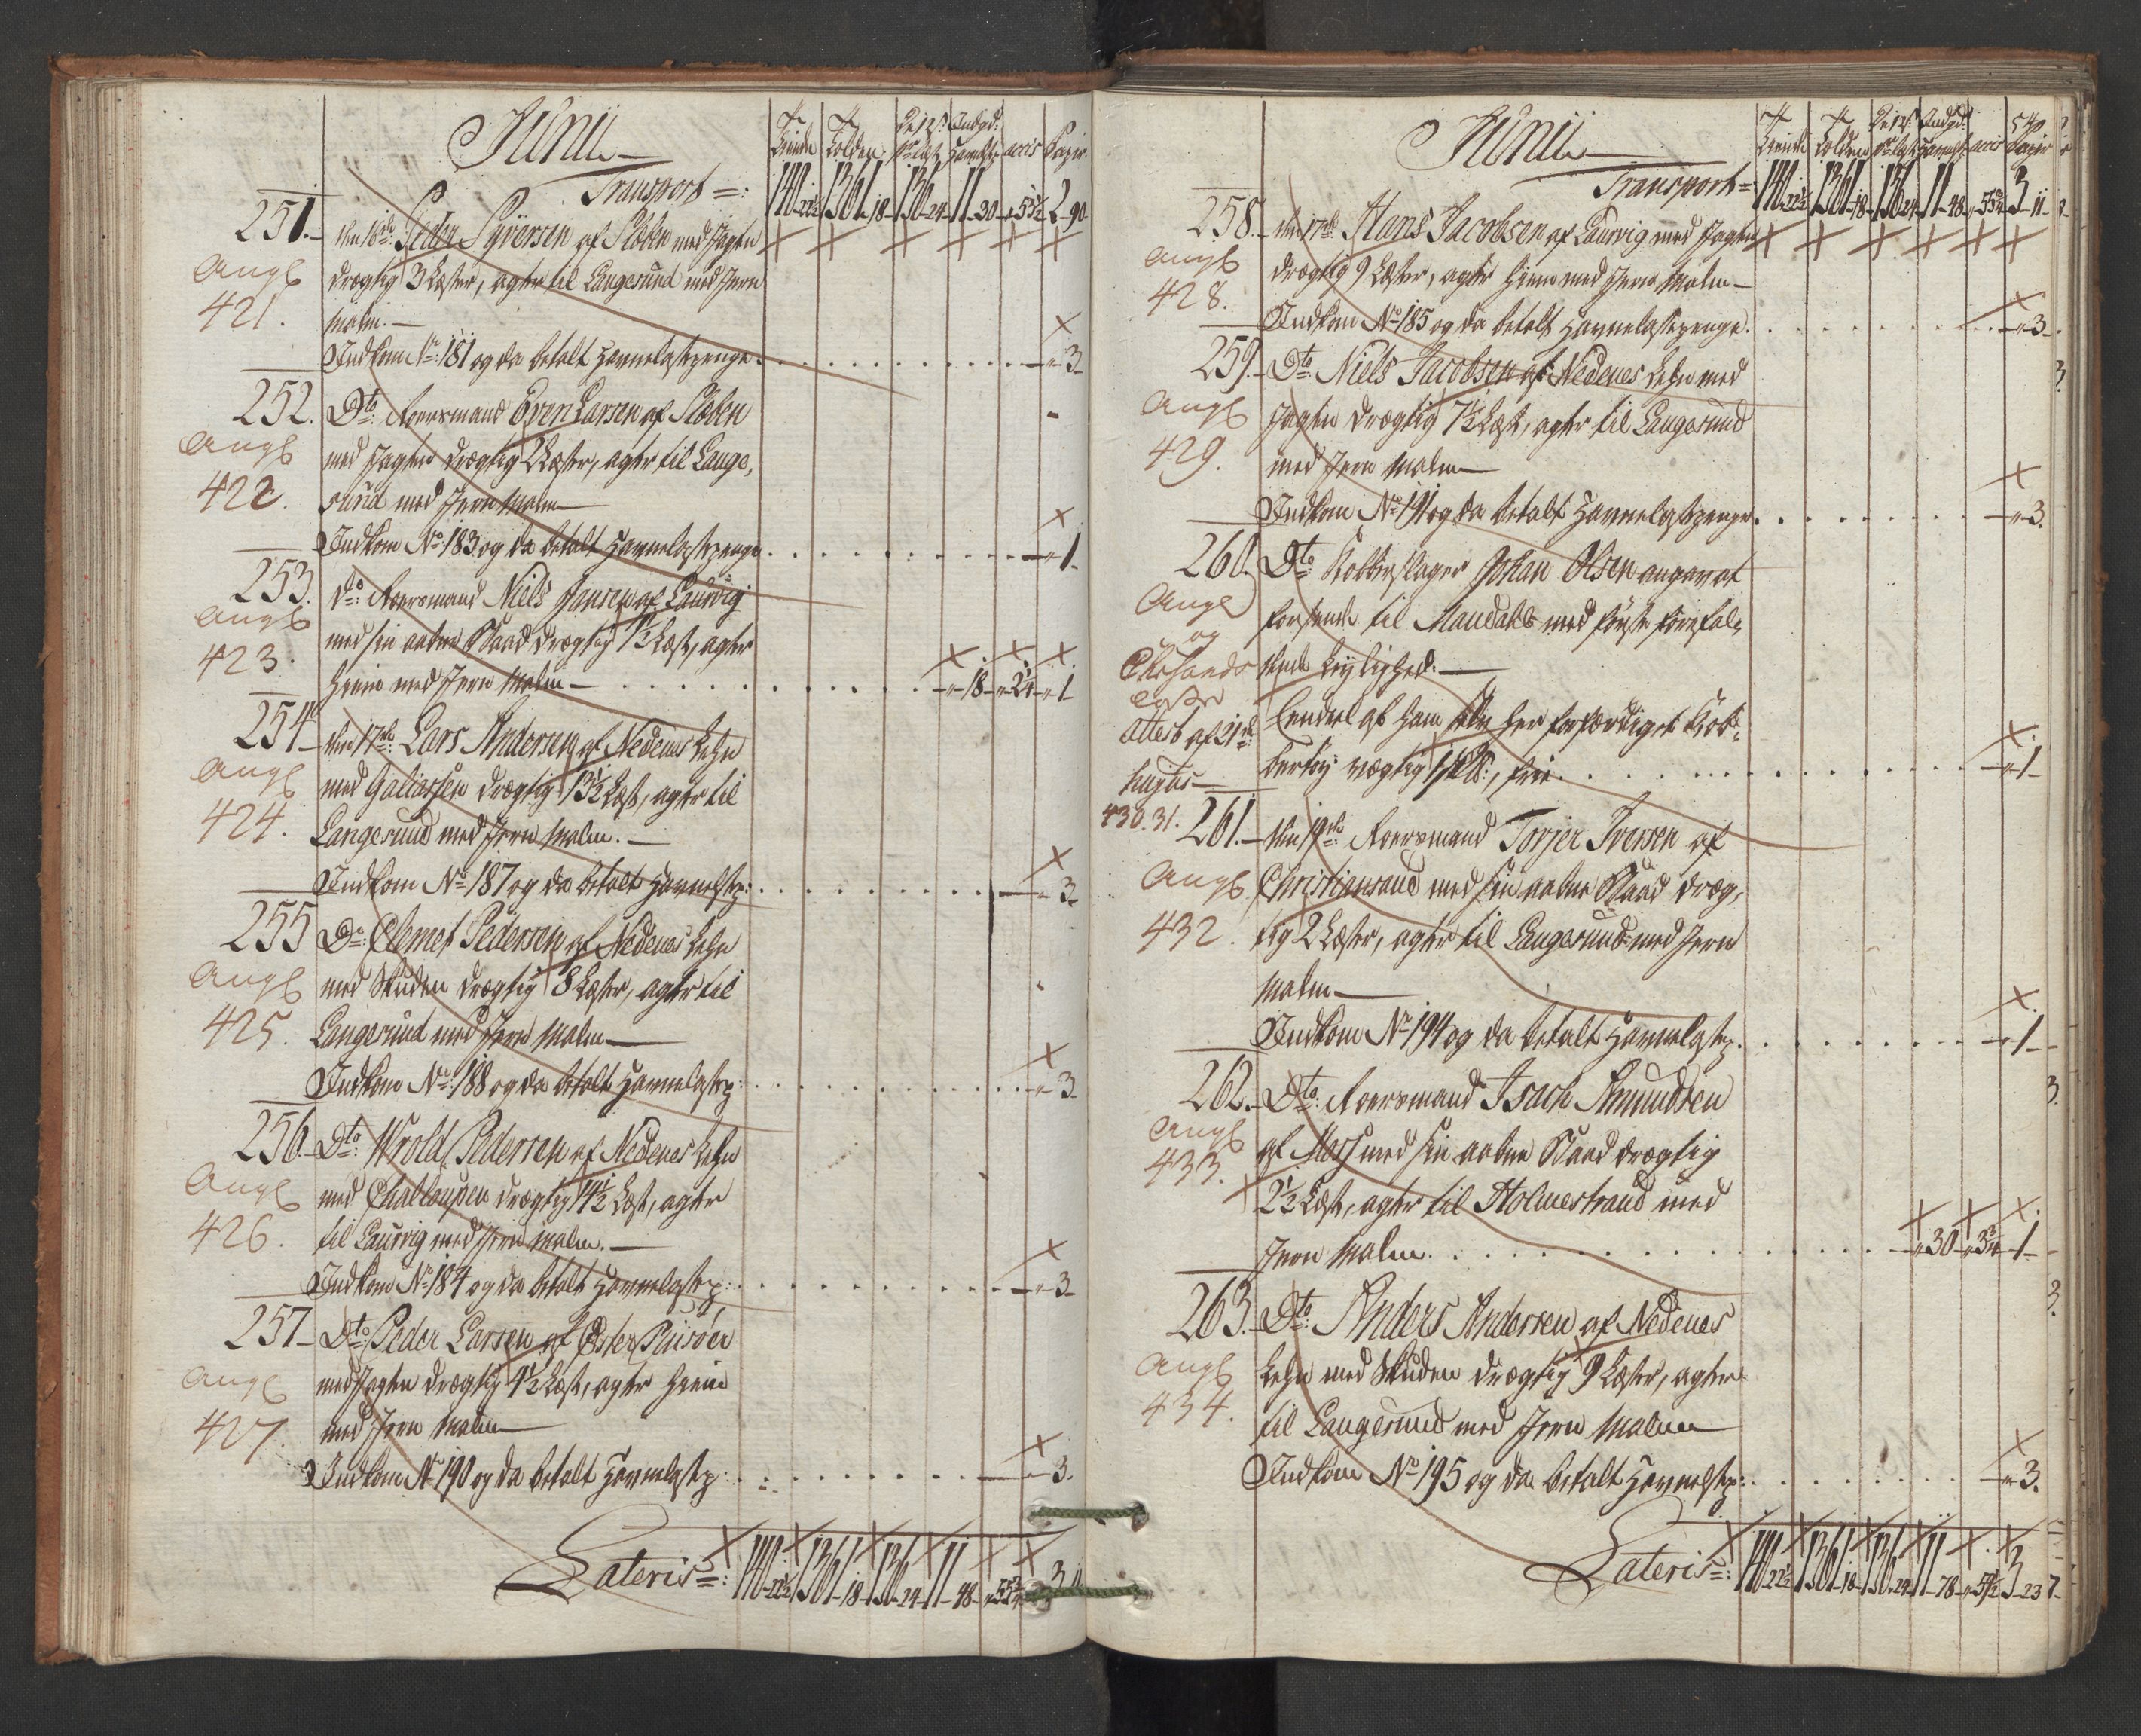 Junii
Tiende Tolden De 12 s: pr Læst Indgd: Havnelst: accis Papir
Transport =: 140-22½ 1361-18- 136-24- 11-30- 2-90
251. den 16de Peder Syversen af Sleben med Jagten
drægtig 3 Læster, agter til Langesund med Jern
Malm.
Angb 421.
Indkom No 181 og da betalt Havnelastpenge. -"-3-
252. Dto Aversmand Even Larsen af Sleben
med Jagten drægtig 2 Læster, agter til Lange,
sund med Jern Malm
Angb 422.
Indkom No 183 og da betalt Havnelastpenge -"-1-
253. Do Aversmand Niels Jensen af Laurvig
med sin aabne Baad drægtig 1½ Læst, agter
hiem med Jern Malm - -"-18- "2¼ "1-
Angb 423.
254. den 17de Lars Andersen af Nedenes Lehn
med Galiassen drægtig 13½ Læst, agter til
Langesund med Jern Malm.
Angb 424.
Indkom No 187 og da betalt Havnelstp: -"-3-
255 Do Clemet Pedersen af Nedenes Lehn
med Skuden drægtig 8 Læster, agter til
Langesund med Jern Malm
Angb 425.
Indkom No 188 og da betalt Havnelastp: -"-3-
256. Dto Wrold Pedersen af Nedenes Lehn
med Challoupen drægtig 14½ Læst, agter
til Laurvig med Jern Malm.
Angb 426.
Indkom No 184 og da betalt Havnelastp: -"-3-
257 Dto Peder Larsen af Øster Riisøer
med Jagten drægtig 4½ Læst, agter hiem
med Jern Malm
Angb 427.
Indkom No 190 og da betalt Havnelastp: -"-3.
Lateris =: 140-22½ 1361-18- 136-24- 11-48-
Junii
Tiende Tolden De 12 s: pr Læst Indgd: Havnelst: accis Papir
Transport =: 140-22½ 1361-18- 136-24- 11-48- 3-11-
258. den 17de Hans Jacobsen af Laurvig med Jagten
drægtig 9 Læster, agter hiem med Jern Malm
Angb 428.
Indkom No 185 og da betalt Havnelastpenge. -"-3-
259. Dto Niels Jacobsen af Nedenes Lehn med
Jagten drægtig 7½ Læst, agter til Langesund
med Jern Malm
Angb 429.
Indkom No 191 og da betalt Havnelastpenge. -"-3.
260. Dto Kobberslager Johan Olsen angav at
forsende til Mandahl med første forefal,
dende Leylighed.
Angb og
Attest af 21de
hujus
430.31.
af ham selv her forfærdiget Kob,
bertøy vægtig -"-1-
261. den 19de Aversmand Torjer Iversen af
Christiansand med sin aabne Baad dræg,
tig 2 Læster, agter til Langesund med Jern
Malm
Angb 432.
Indkom No 194 og da betalt Havnelastp. -"-1-
262. Dto Aversmand Isach Amundsen
af Moss med sin aabne Baad drægtig
2½ Læst, agter til Holmestrand med
Jern Malm. -"30- "3¾ -1-
Angb 433.
263. Dto Anders Andersen af Nedenes
Lehn med Skuden drægtig 9 Læster, agter
til Langesund med Jern Malm
Angb 434.
Indkom No 195 og da betalt Havnelstp: -"-3.
Lateris =: 140-22½ 1361-18- 136-24- 11-78- 3-23